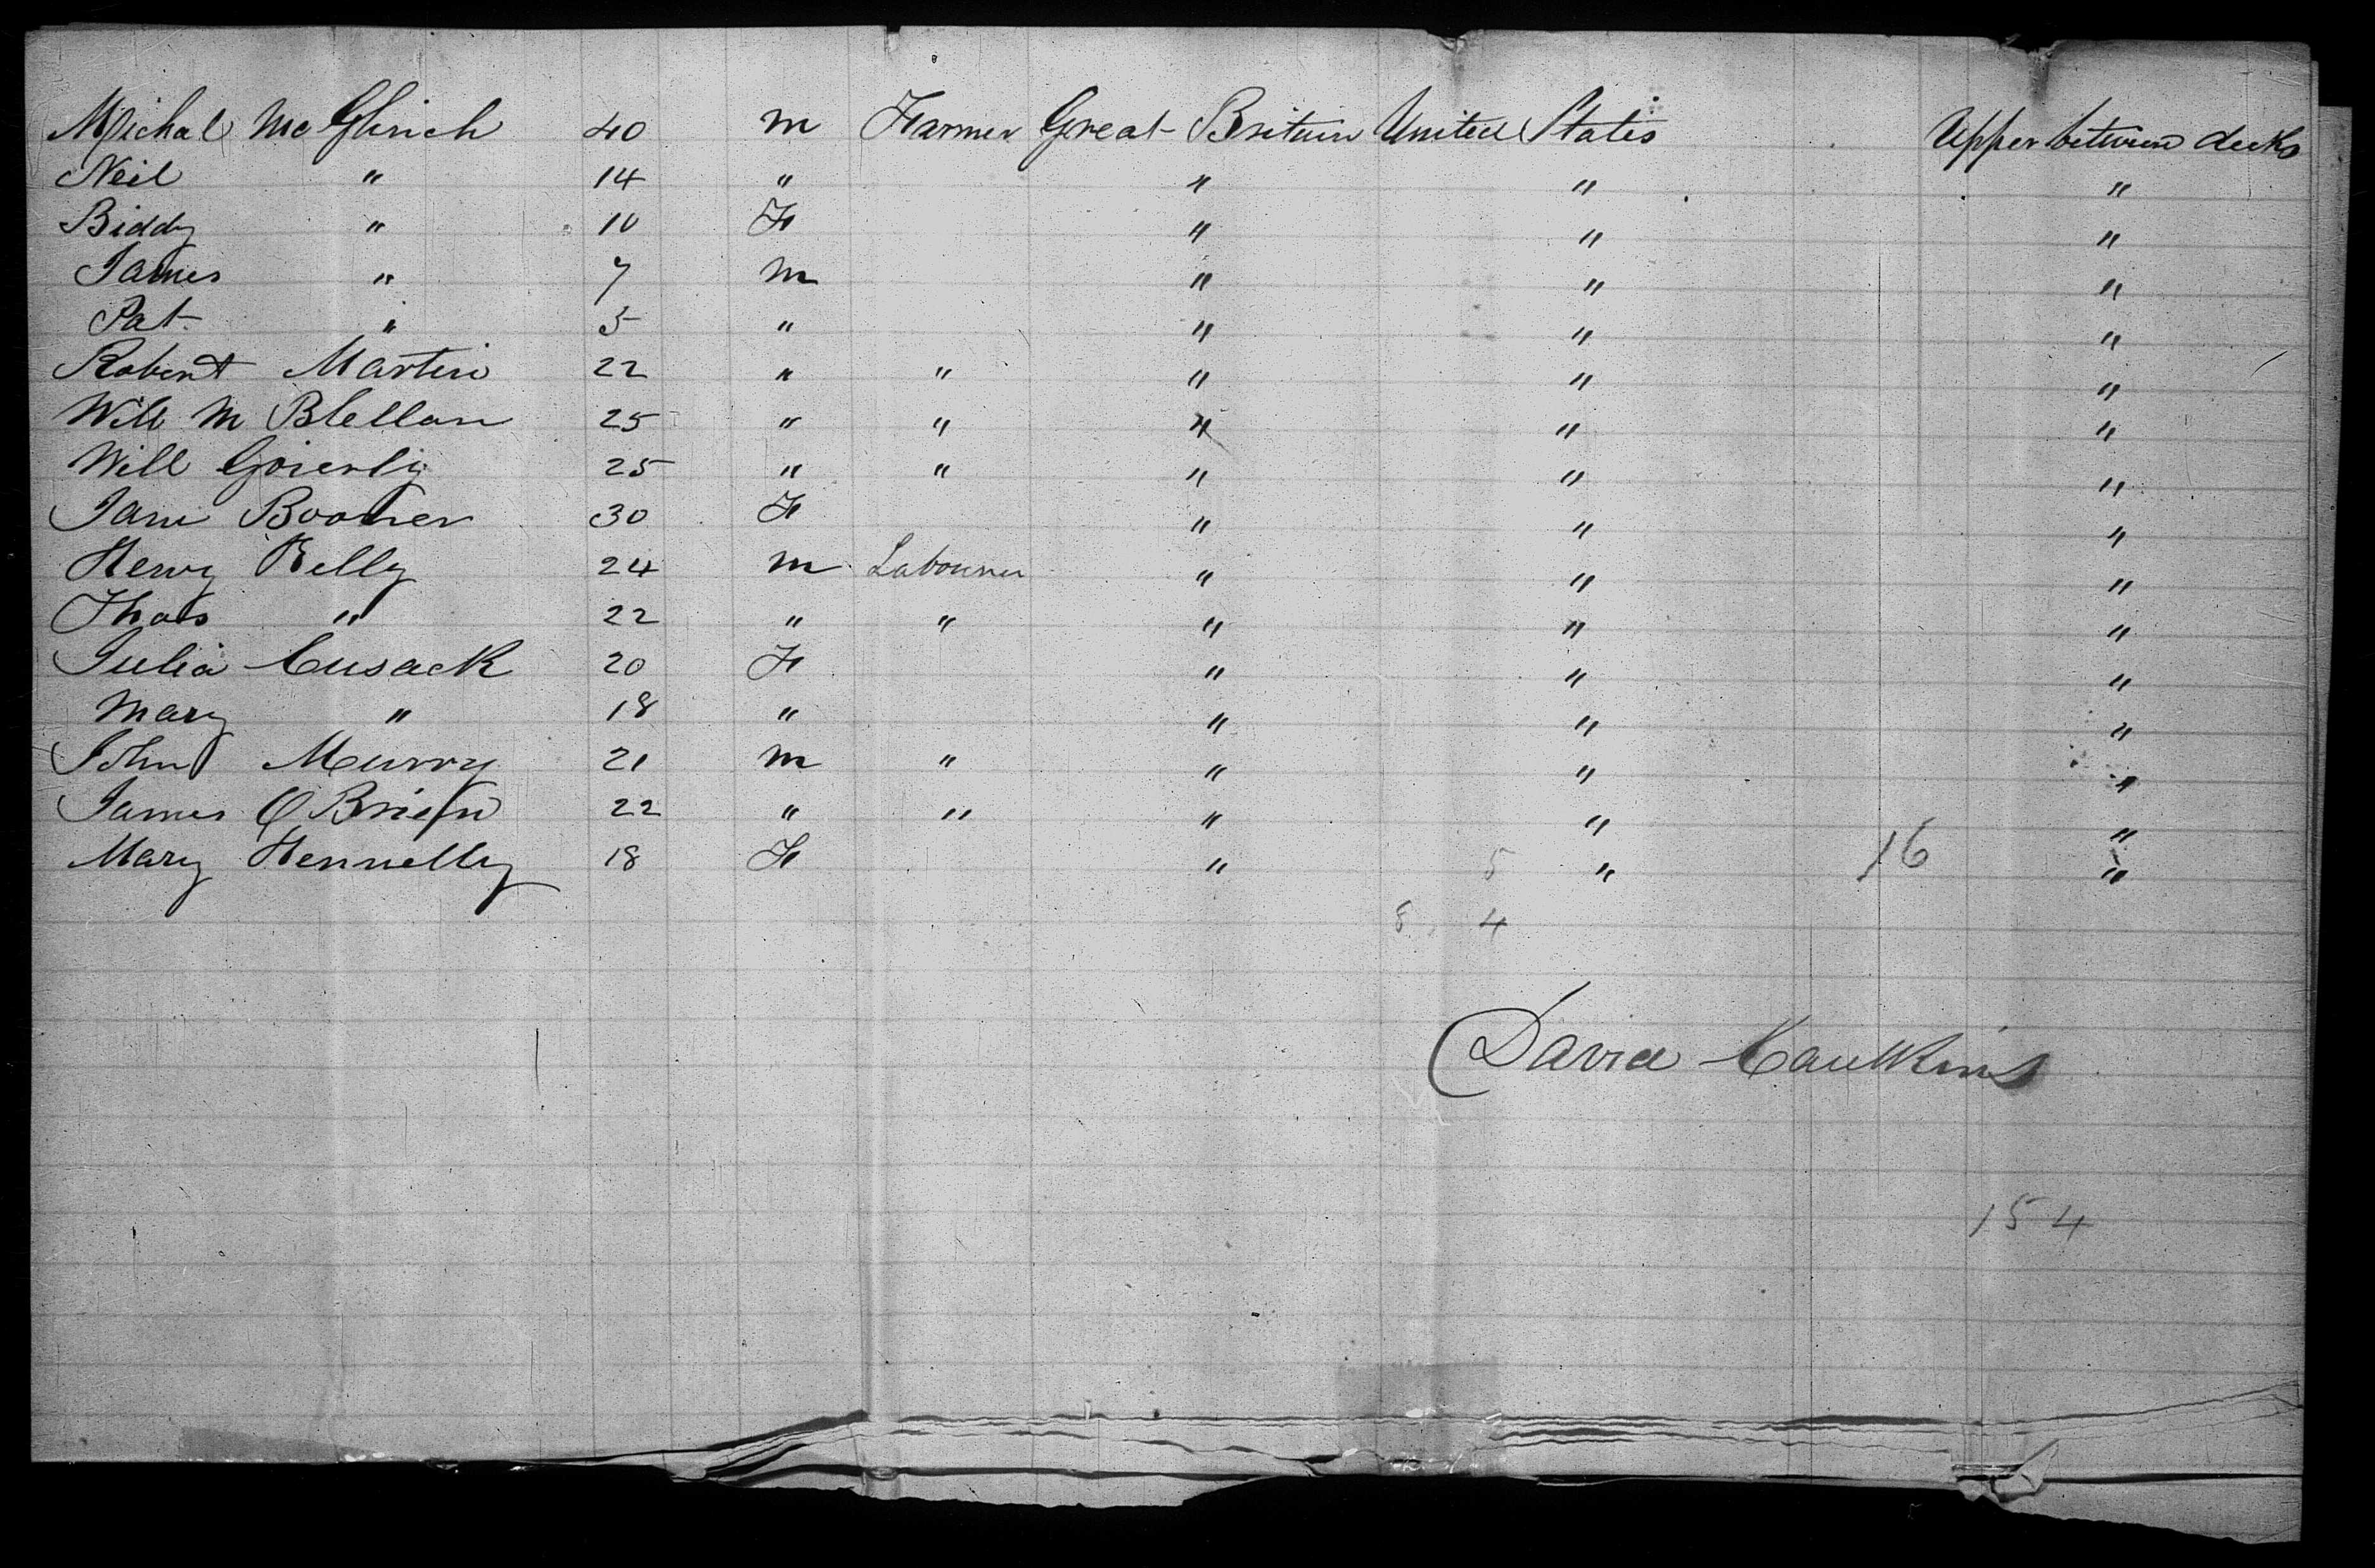 Michal McGlinch 40 m Farmer Great Britain United States Upper between decks
Neil " 14 " " " "
Biddy " 10 F " " "
James " 7 m " " "
Pat " 5 " " " "
Robert Martin 22 " " " " "
Will M 25 " " " " "
Will 25 " " " " "
Jane 30 F " " "
Henry Kelly 24 m Labourer " " "
Thos " 22 " " " " "
Julia Cusack 20 F " " "
Mary " 18 " " " "
John Murry 21 m " " " "
James O Brien 22 " " " " "
Mary Hennelly 18 F " 5 " 16 "
8 4
David Caulkins
154